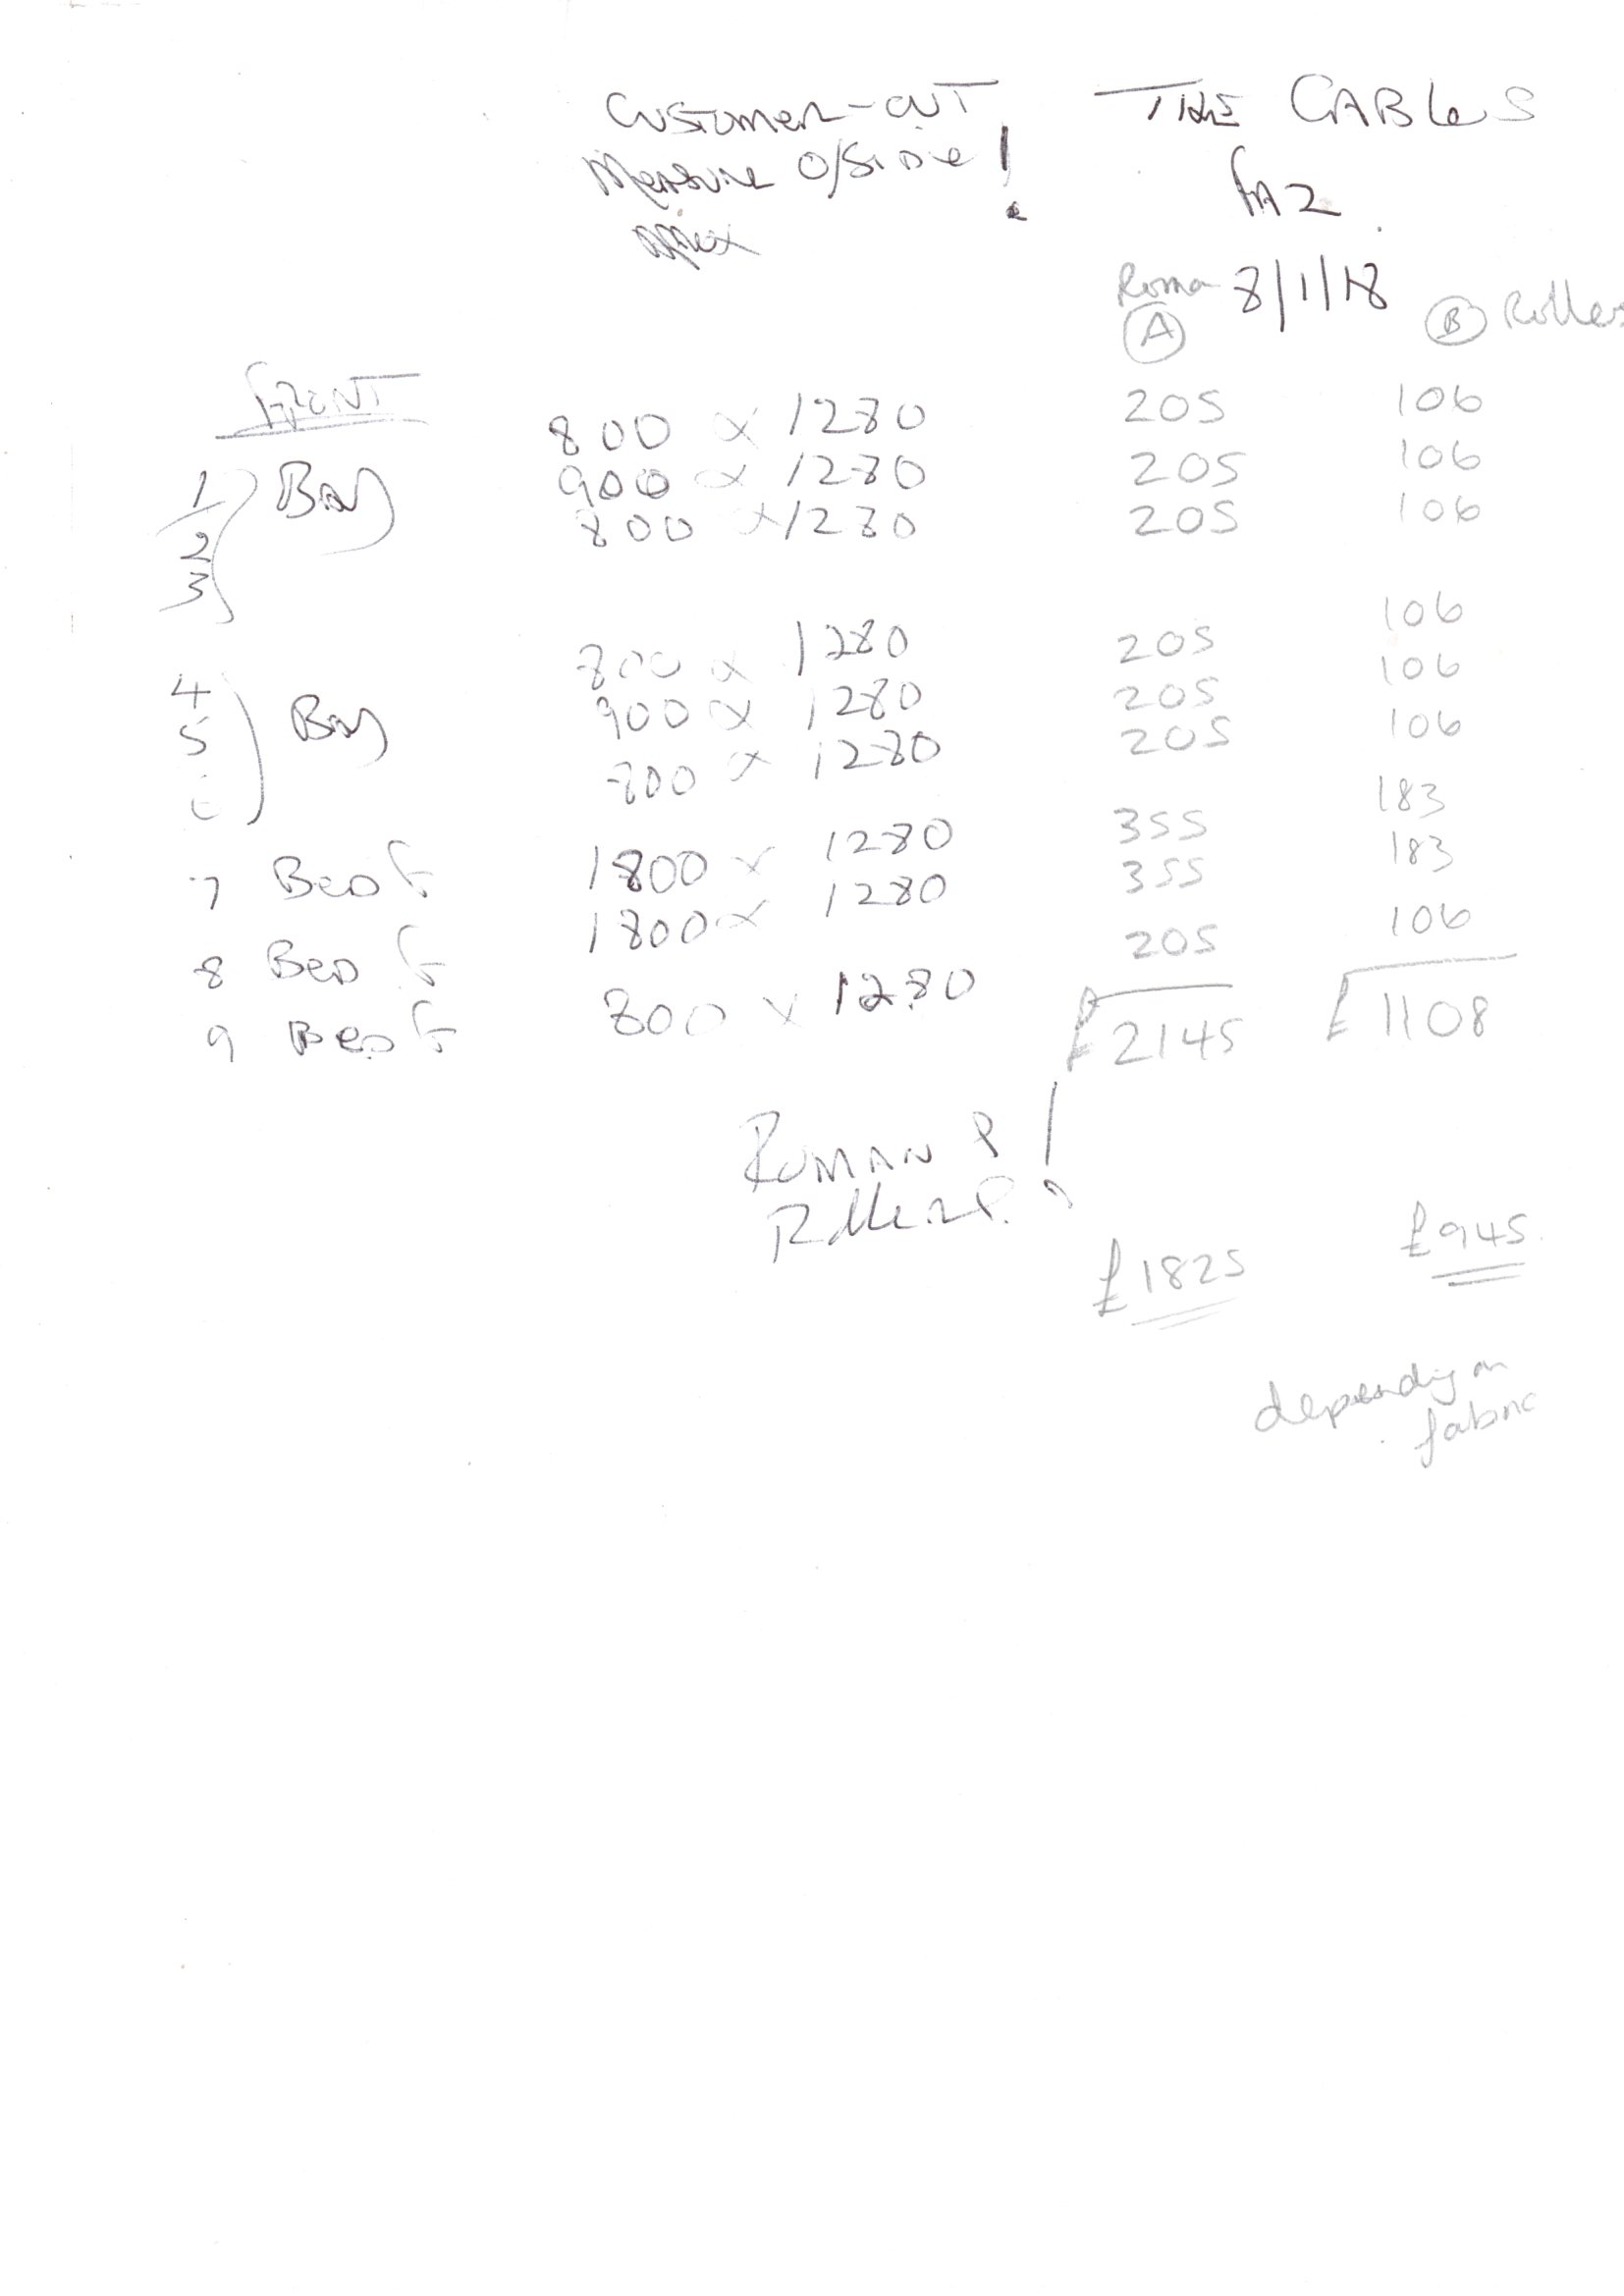 Customer - OUT THE CABLES
Measure O/Side!
Roman 8/1/18 Roller
A B
FRONT
1 Bay 800 x 1280 205 106
2 900 x 1280 205 106
3 800 x 1280 205 106
4 Bay 800 x 1280 205 106
5 900 x 1280 205 106
800 x 1280 205 106
7 Bed F 1800 x 1280 355 183
8 Bed F 1800 x 1280 355 183
9 Bed F 800 x 1280 205 106
£2145 £1108
ROMAN ?
Roller ?
£1825 £945
depending on
fabric